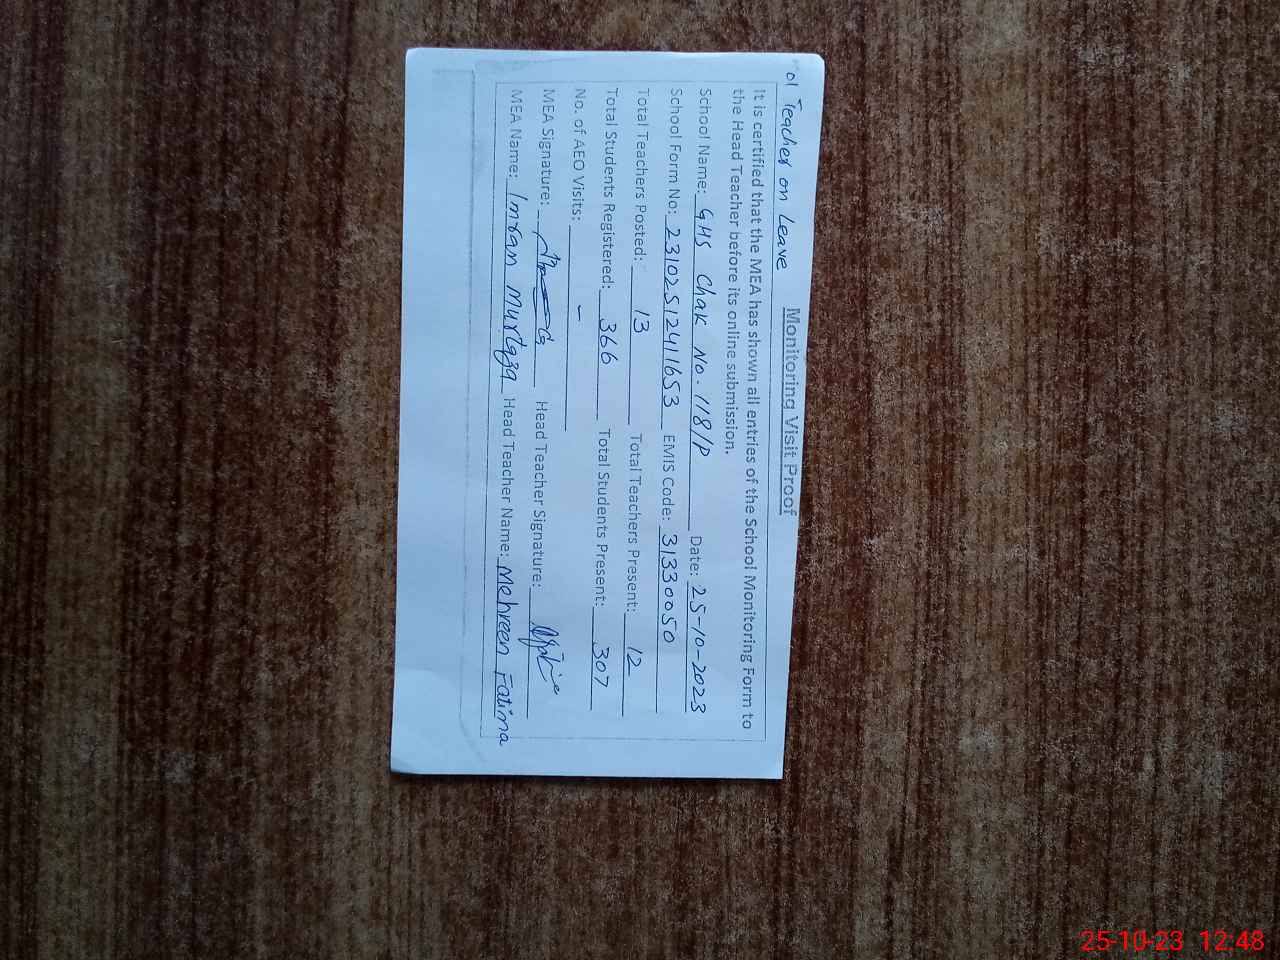 01 Teacher on Leave
Monitoring Visit Proof
It is certified that the MEA has shown all entries of the School Monitoring Form to
the Head Teacher before its online submission.
School Name: GHS Chak No. 118/P Date: 25-10-2023
School Form No: 23102512411653 EMIS Code: 31330050
Total Teachers Posted: 13 Total Teachers Present: 12
Total Students Registered: 366 Total Students Present: 307
No. of AEO Visits: -
MEA Signature: Head Teacher Signature:
MEA Name: Imran Murtaza Head Teacher Name: Mehreen Fatima
25-10-23 12:48